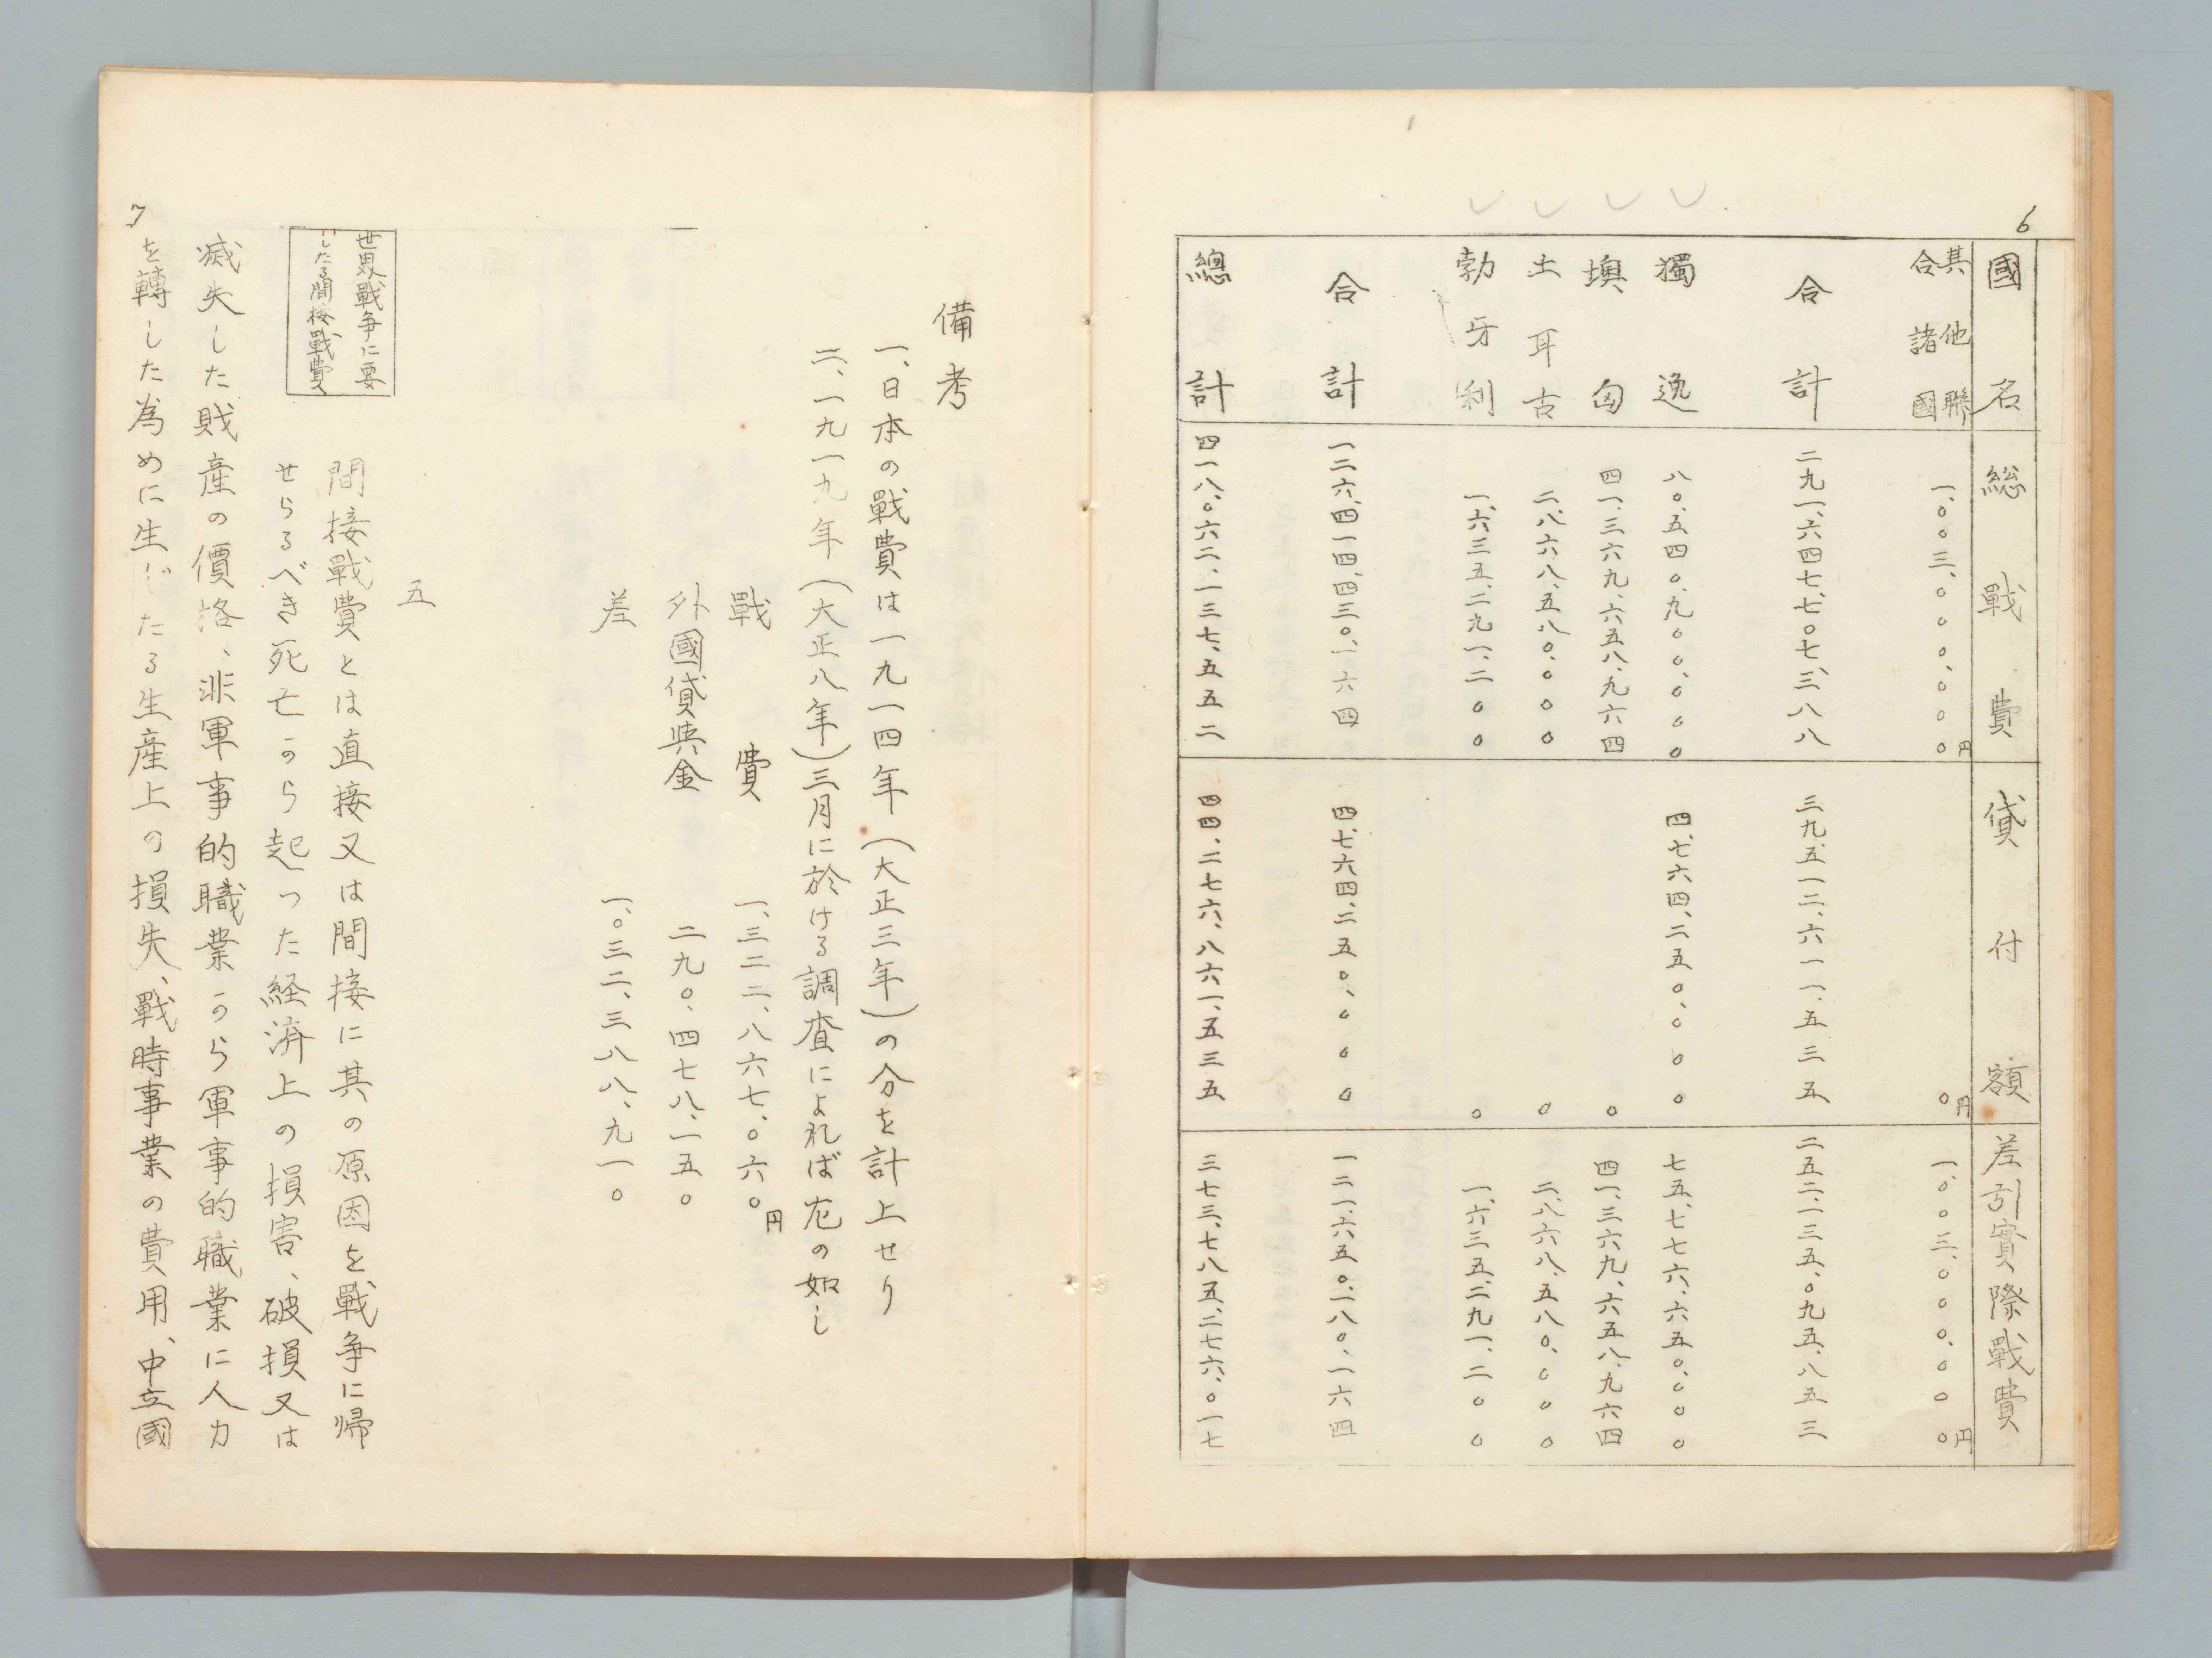 6
國名 総戰費 貸付額 差引實際戰費
其他聯合諸國 一、〇〇三、〇〇〇、〇〇〇円 〇円 一、〇〇三、〇〇〇、〇〇〇円
合計 二九一、六四七、七〇七、三八八 三九、五一二、六一一、五三五 二五二、一三五、〇九五、八五三
獨逸 八〇、五四〇、九〇〇、〇〇〇 四、七六四、二五〇、〇〇〇 七五、七七六、六五〇、〇〇〇
墺匈 四一、三六九、六五八、九六四 〇 四一、三六九、六五八、九六四
土耳古 二、八六八、五八〇、〇〇〇 〇 二、八六八、五八〇、〇〇〇
勃牙利 一、六三五、二九一、二〇〇 〇 一、六三五、二九一、二〇〇
合計 一二六、四一四、四三〇、一六四 四、七六四、二五〇、〇〇〇 一二一、六五〇、一八〇、一六四
總計 四一八、〇六二、一三七、五五二 四四、二七六、八六一、五三五 三七三、七八五、二七六、〇一七
備考
一、日本の戰費は一九一四年(大正三年)の分を計上せり
二、一九一九年(大正八年)三月に於ける調査によれば左の如し
戰費 一、三二二、八六七、〇六〇円
外國貸與金 二九〇、四七八、一五〇
差 一、〇三二、三八八、九一〇
五
世界戰争に要
したる間接戰費
間接戰費とは直接又は間接に其の原因を戰争に帰
せらるべき死亡から起った経済上の損害、破損又は
滅失した財産の價格、非軍事的職業から軍事的職業に人力
を轉した為めに生じたる生産上の損失、戰時事業の費用、中立國
7